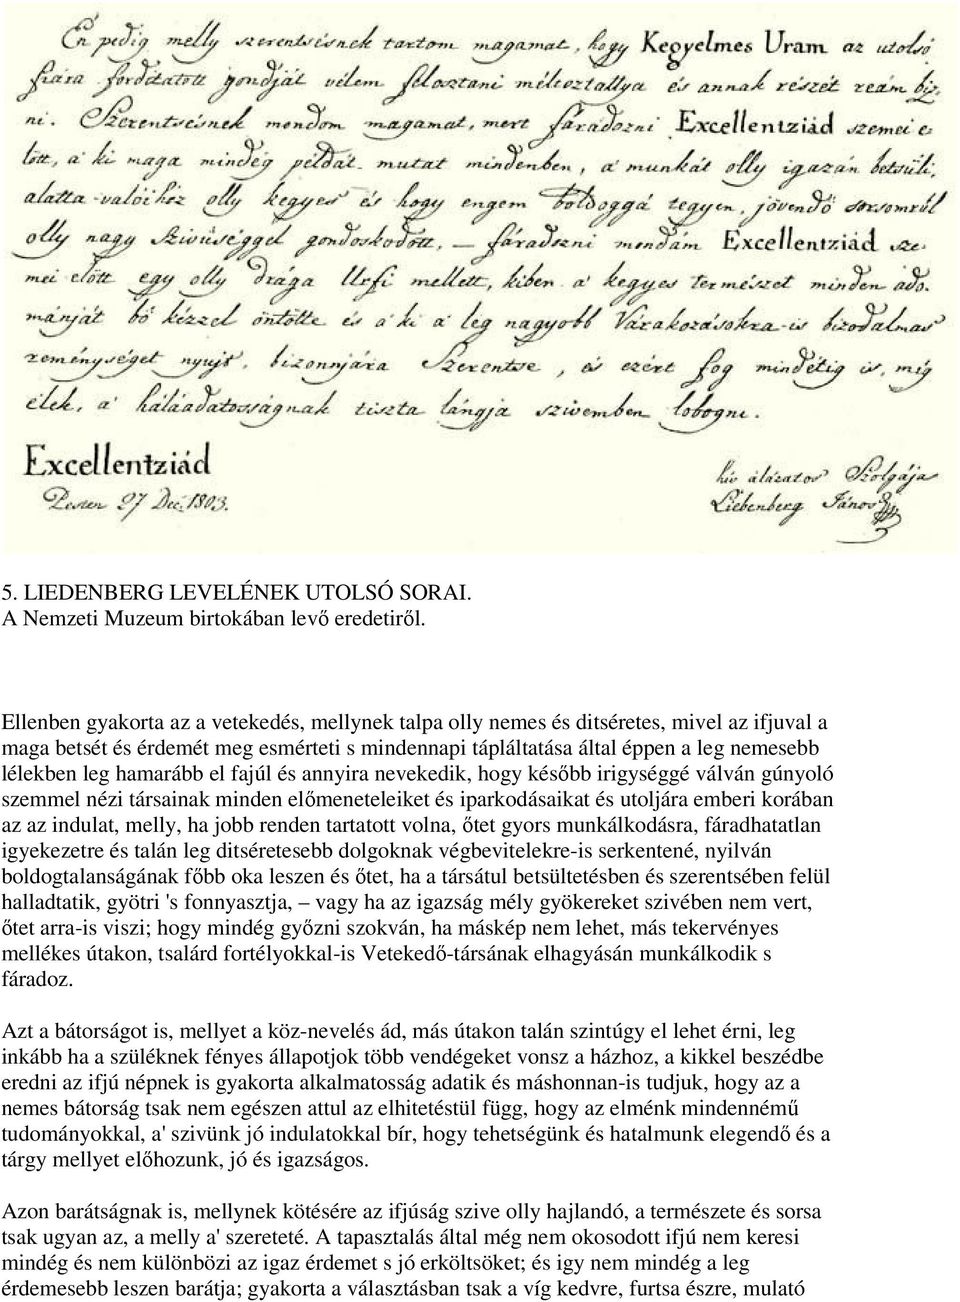 Én pedig melly szerentsésnek tartom magamat, hogy Kegyelmes Uram az utolsó
fiára fordétatott gondját vélem felosztani méltoztallya és annak részét reám biz-
ni. Szerentsésnek mondom magamat, mert fáradozni Excellentziád szemei e-
lött, a' ki maga mindég példát mutat mindenben, a' munkát olly igazán betsüli,
alatta-valóihoz olly kegyes és hogy engem boldoggá tegyen, jövendő sorsomrúl
olly nagy szivüséggel gondoskodott, — fáradozni mondám Excellentziád sze-
mei elött egy olly drága Urfi mellett, kiben a' kegyes termeszet minden ado-
mányát bő kézzel öntötte és a' ki a' leg nagyobb Várakozásokra-is bizodalmas
reménységet nyujt, bizonnjára Szerentse, és ezért fog mindétig is, míg
élek, a' háláadatosságnak tiszta lángja szivemben lobogni.
Excellentziád
hív alázatos Szolgája
Pesten 27 Dec. 1803.
Liebenberg János
5. LIEDENBERG LEVELÉNEK UTOLSÓ SORAI.
A Nemzeti Muzeum birtokában levő eredetiről.
Ellenben gyakorta az a vetekedés, mellynek talpa olly nemes és ditséretes, mivel az ifjuval a
maga betsét és érdemét meg esmérteti s mindennapi tápláltatása által éppen a leg nemesebb
lélekben leg hamarább el fajúl és annyira nevekedik, hogy később irigységgé válván gúnyoló
szemmel nézi társainak minden előmeneteleiket és iparkodásaikat és utoljára emberi korában
az az indulat, melly, ha jobb renden tartatott volna, őtet gyors munkálkodásra, fáradhatatlan
igyekezetre és talán leg ditséretesebb dolgoknak végbevitelekre-is serkentené, nyilván
boldogtalanságának főbb oka leszen és őtet, ha a társátul betsültetésben és szerentsében felül
halladtatik, gyötri 's fonnyasztja, – vagy ha az igazság mély gyökereket szivében nem vert,
őtet arra-is viszi; hogy mindég győzni szokván, ha máskép nem lehet, más tekervényes
mellékes útakon, tsalárd fortélyokkal-is Vetekedő-társának elhagyásán munkálkodik s
fáradoz.
Azt a bátorságot is, mellyet a köz-nevelés ád, más útakon talán szintúgy el lehet érni, leg
inkább ha a szüléknek fényes állapotjok több vendégeket vonsz a házhoz, a kikkel beszédbe
eredni az ifjú népnek is gyakorta alkalmatosság adatik és máshonnan-is tudjuk, hogy az a
nemes bátorság tsak nem egészen attul az elhitetéstül függ, hogy az elménk mindennémű
tudományokkal, a' szivünk jó indulatokkal bír, hogy tehetségünk és hatalmunk elegendő és a
tárgy mellyet előhozunk, jó és igazságos.
Azon barátságnak is, mellynek kötésére az ifjúság szive olly hajlandó, a természete és sorsa
tsak ugyan az, a melly a' szereteté. A tapasztalás által még nem okosodott ifjú nem keresi
mindég és nem különbözi az igaz érdemet s jó erköltsöket; és igy nem mindég a leg
érdemesebb leszen barátja; gyakorta a választásban tsak a víg kedvre, furtsa észre, mulató